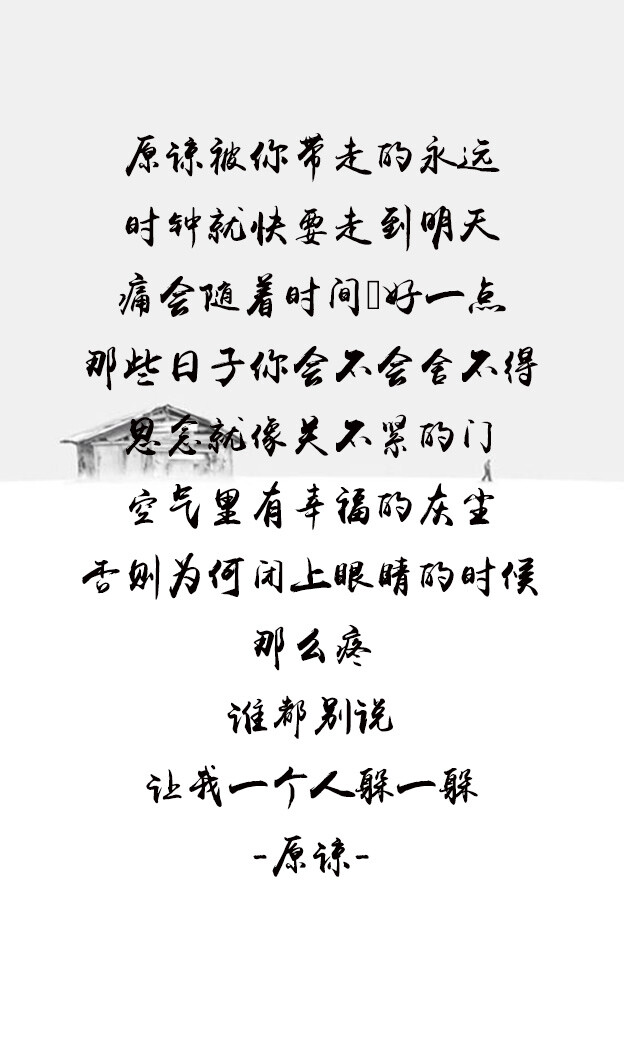 原谅被你带走的永远
时钟就快要走到明天
痛会随着时间好一点
那些日子你会不会舍不得
思念就像关不紧的门
空气里有幸福的灰尘
否则为何闭上眼睛的时候
那么疼
谁都别说
让我一个人躲一躲
-原谅-